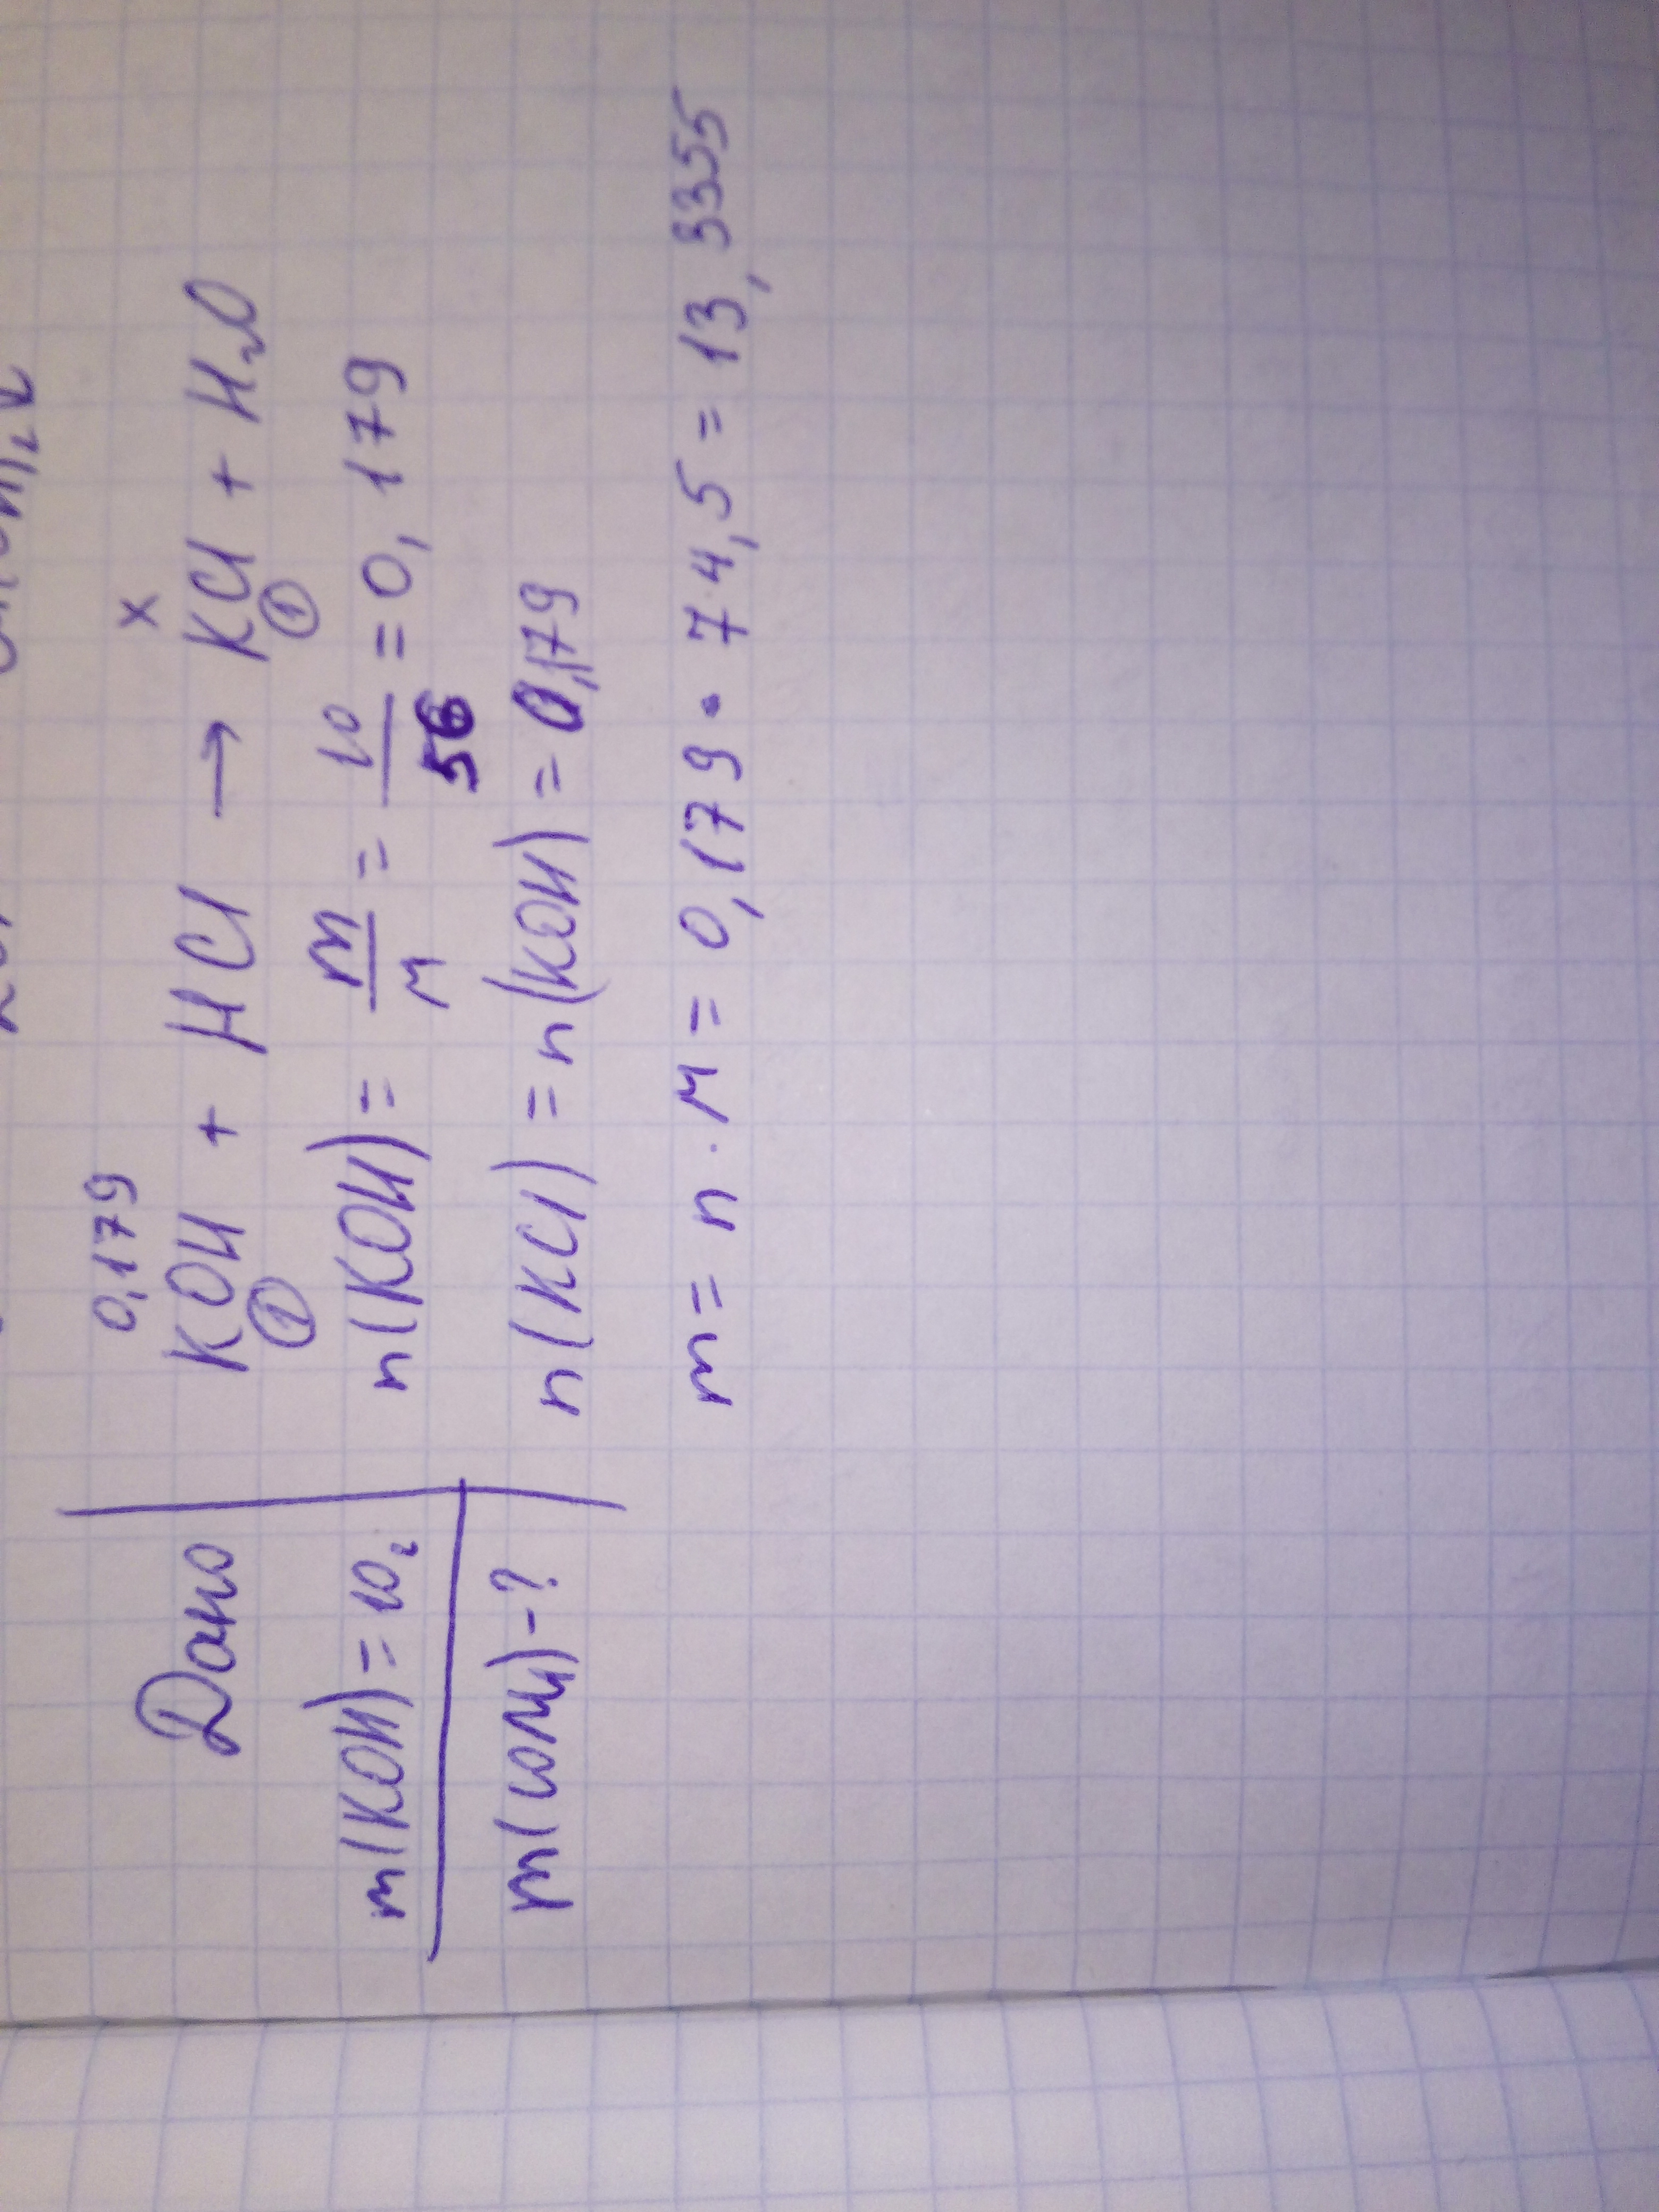 Дано
m(KOH)=10г
m(соли)-?
0,179 x
KOH + HCl → KCl + H2O
① ①
n(KOH) = m/M = 10/56 = 0,179
n(KCl) = n(KOH) = 0,179
m = n · M = 0,179 · 74,5 = 13,3355